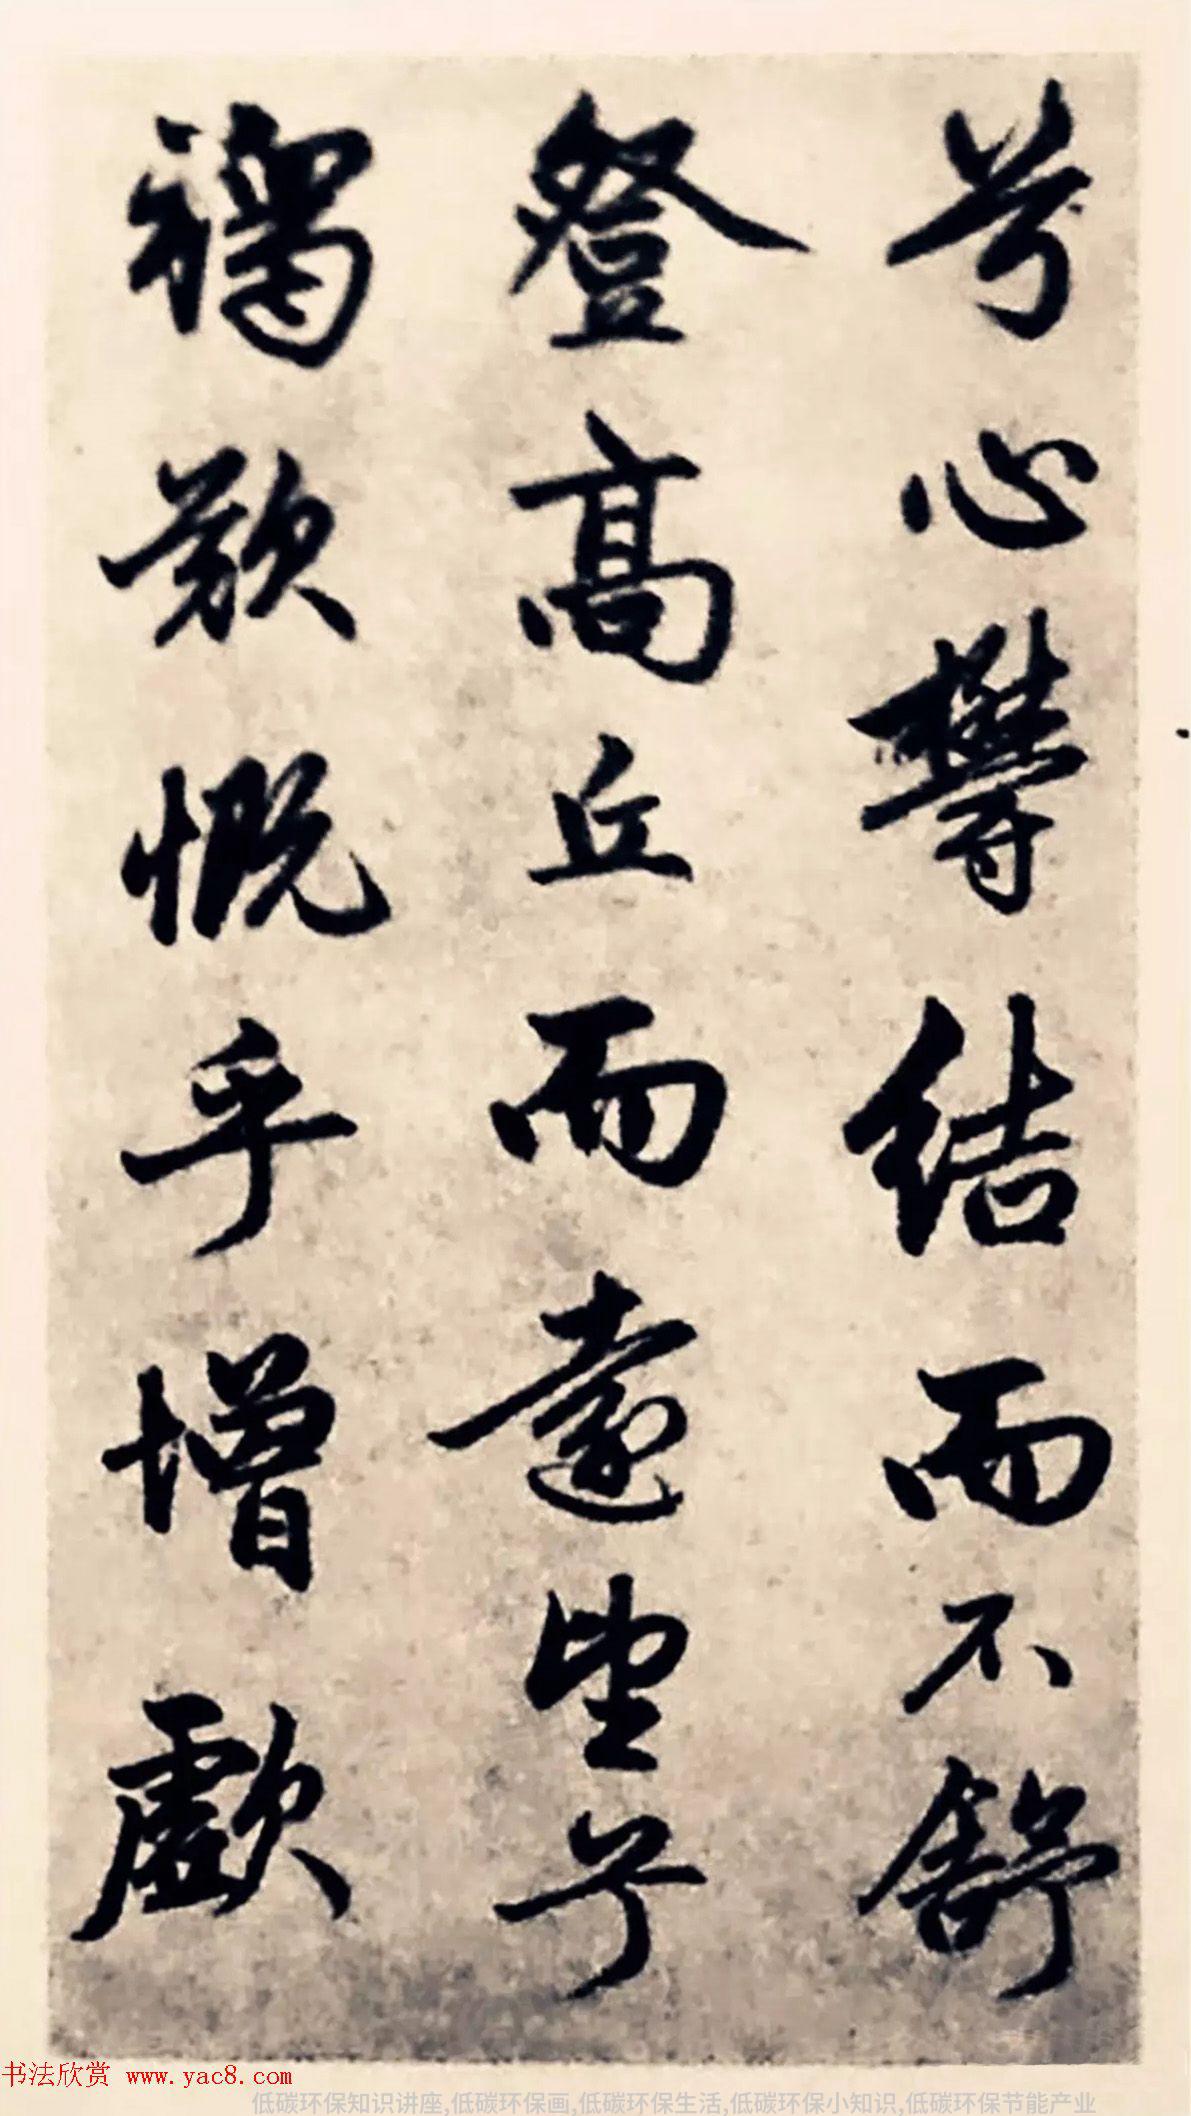 兮心欝結而不舒
登高丘而遠望兮
歎慨乎增歔
书法欣赏 www.yac8.com
低碳环保知识讲座,低碳环保画,低碳环保生活,低碳环保小知识,低碳环保节能产业